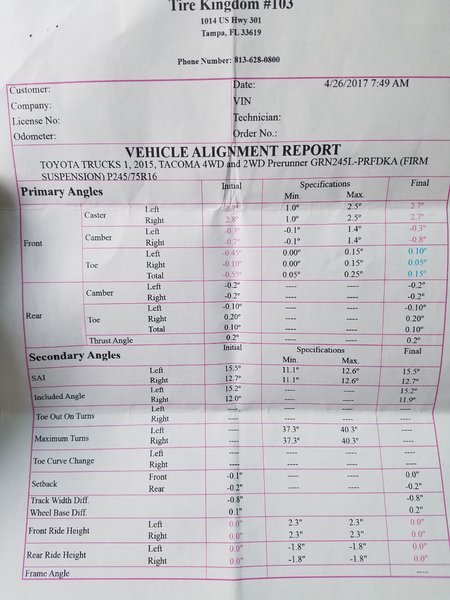 Tire Kingdom #103
1014 US Hwy 301
Tampa, FL 33619
Phone Number: 813-628-0800
Customer: Date: 4/26/2017 7:49 AM
Company: VIN
License No: Technician:
Odometer: Order No.:
VEHICLE ALIGNMENT REPORT
TOYOTA TRUCKS 1, 2015, TACOMA 4WD and 2WD Prerunner GRN245L-PRFDKA (FIRM
SUSPENSION) P245/75R16
Primary Angles Initial Specifications Final
Min. Max.
Front Caster Left 2.7° 1.0° 2.5° 2.7°
Right 2.8° 1.0° 2.5° 2.7°
Camber Left -0.3° -0.1° 1.4° -0.3°
Right -0.7° -0.1° 1.4° -0.8°
Toe Left -0.45° 0.00° 0.15° 0.10°
Right -0.10° 0.00° 0.15° 0.05°
Total -0.55° 0.05° 0.25° 0.15°
Rear Camber Left -0.2° ---- ---- -0.2°
Right -0.2° ---- ---- -0.2°
Toe Left -0.10° ---- ---- -0.10°
Right 0.20° ---- ---- 0.20°
Total 0.10° ---- ---- 0.10°
Thrust Angle 0.2° ---- ---- 0.2°
Secondary Angles Initial Specifications Final
Min. Max.
SAI Left 15.5° 11.1° 12.6° 15.5°
Right 12.7° 11.1° 12.6° 12.7°
Included Angle Left 15.2° ---- ---- 15.2°
Right 12.0° ---- ---- 11.9°
Toe Out On Turns Left ---- ---- ---- ----
Right ---- ---- ---- ----
Maximum Turns Left ---- 37.3° 40.3° ----
Right ---- 37.3° 40.3° ----
Toe Curve Change Left ---- ---- ---- ----
Right ---- ---- ---- ----
Setback Front -0.1" ---- ---- 0.0"
Rear -0.2" ---- ---- -0.2"
Track Width Diff. -0.8" ---- ---- -0.8"
Wheel Base Diff. 0.1" ---- ---- 0.2"
Front Ride Height Left 0.0" 2.3" 2.3" 0.0"
Right 0.0" 2.3" 2.3" 0.0"
Rear Ride Height Left 0.0" -1.8" -1.8" 0.0"
Right 0.0" -1.8" -1.8" 0.0"
Frame Angle ----